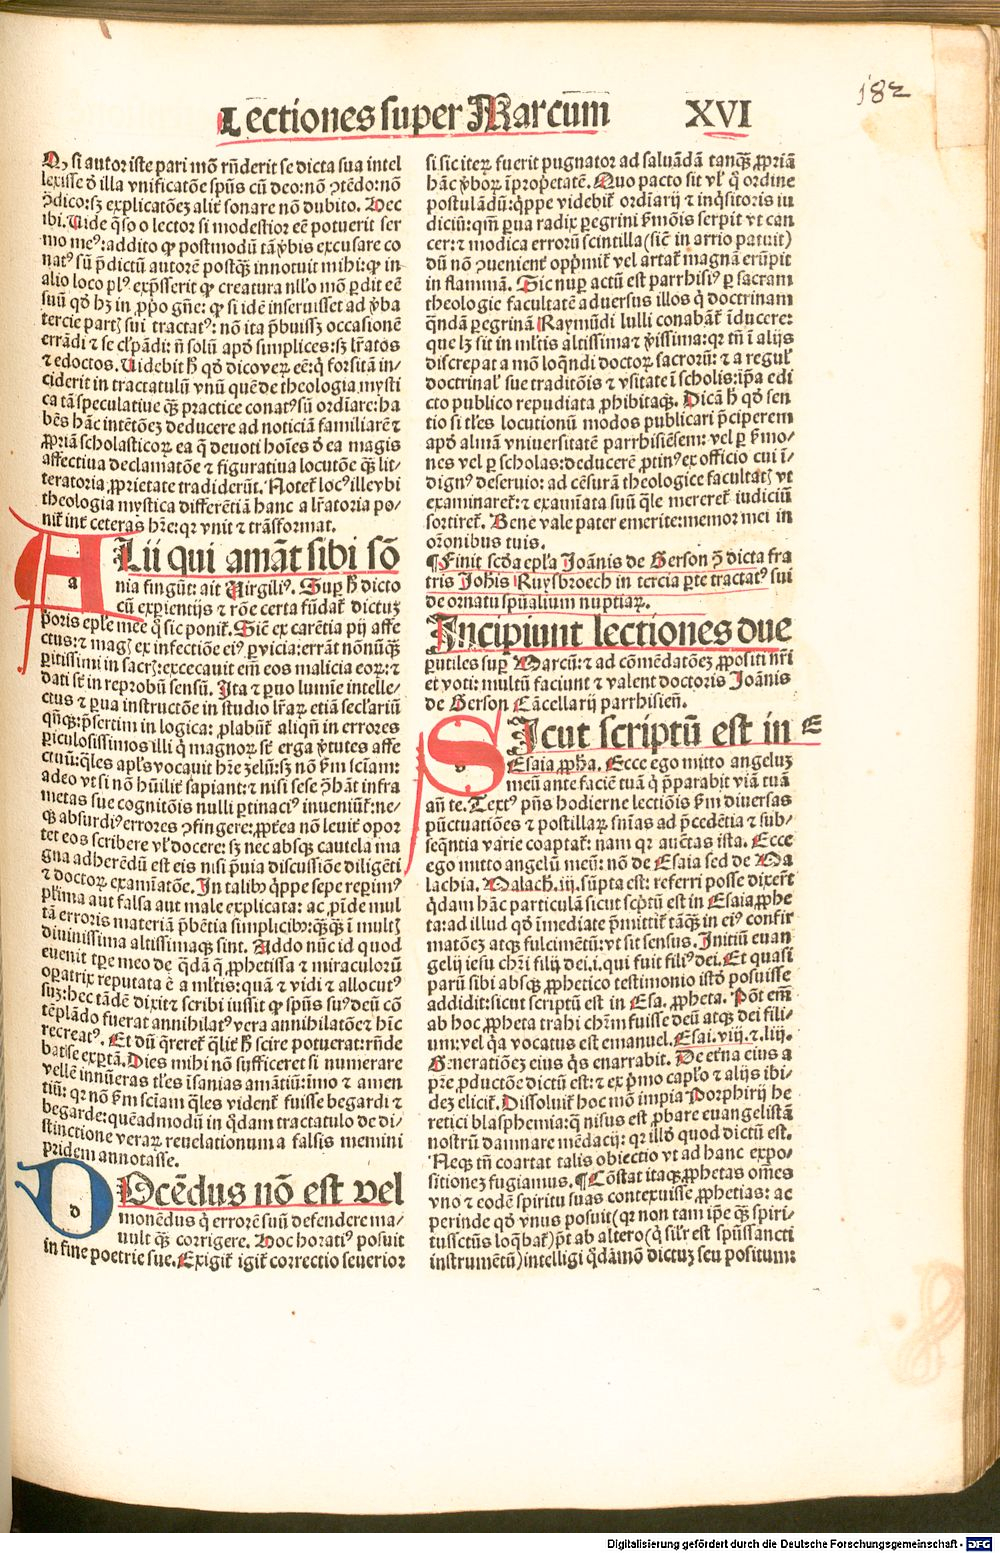 182
Lectiones super Marcum XVI
Q, si autor iste pari mō rñderit se dicta sua intel
lexisse ð illa vnificatōe spūs cū deo: nō ꝯtēdo: nō
ꝯdico: sz explicatōez alit̄ sonare nō dubito. Hec
ibi. Uide q̄so o lector si modestior eē potuerit ser
mo meꝰ: addito qꝫ postmodū tā ƥbis excusare co
natꝰ sū p̄dictū autorē postq̄ꝫ innotuit mihi: qꝫ in
alio loco plꝰ exp̄sserit qꝫ creatura nllo mō ꝑdit eē
suū qð hz in ꝓpo gñe: qꝫ si idē inseruisset ad ƥba
tercie partꝭ sui tractatꝰ: nō ita p̄buissꝫ occasionē
errādi ⁊ se cl̓pādi: ñ solū apð simplices: sꝫ lr̄atos
⁊ edoctos. Uidebit̄ ħ qð dico verꝫ eē: q̓ forsitā in-
ciderit in tractatulū vnū quē de theologia mysti
ca tā speculatiue q̄ꝫ practice conatꝰ sū ordīare: ha
bēs hāc intētōez deducere ad noticiā familiarē ⁊
ꝓpriā scholasticoꝝ ea q̄ deuoti hoīes ð ea magis
affectiua declamatōe ⁊ figuratiua locutōe q̄ꝫ lit-
teratoria ꝓprietate tradiderūt. Notet̄ locꝰ ille vbi
theologia mystica differētiā hanc a lr̄atoria po-
nit̄ int̄ ceteras hr̄e: qꝛ vnit ⁊ trāsformat.
Alii qui amāt sibi sō
a
nia fingūt: ait Virgiliꝰ. Suꝑ ħ dicto
cū experientijs ⁊ rōe certa fūdat̄ dictuꝫ
poris eple mee q̓ sic ponit̄. Sic̄ ex carētia pij affe
ctus: ⁊ magꝭ ex infectiōe eiꝰ ꝑuicia: errāt nōnūq̄ꝫ
ꝑitissimi in sacrꝭ: excecauit em̄ eos malicia eoꝝ: ⁊
dati st̄ in reprobū sensū. Ita ⁊ ꝑ uo lumīe intelle-
ctus ⁊ ꝑua instructōe in studio lr̄aꝝ etiā secl̓ariū
qñqꝫ: p̄sertim in logica: ꝓlabūt̄ aliqñ in errores
ꝑiculosissimos illi q̓ magnoꝝ st̄ erga ƥtutes affe
ctuū: q̄les apl̓s vocauit hr̄e zelū: sꝫ nō ẜm sciam:
adeo vt si nō hūilit̄ sapiant: ⁊ nisi sese ꝯhāt infra
metas sue cognitōis nulli ꝑtinaciꝰ inueniūt̄: ne-
qꝫ absurdiꝰ errores ꝯfingere: ꝓpt̄ea nō leuit̄ opor
tet eos scribere vl̓ docere: sꝫ nec absqꝫ cautela ma
gna adherēdū est eis nisi p̄uia discussiōe diligēti
⁊ doctoꝝ examīatōe. In talibꝰ q̓ppe sepe reperimꝰ
pl̓ima aut falsa aut male explicata: ac ꝓīde mul
tā erroris materiā p̄bētia simplicibꝰ: q̄ꝫq̄ꝫ ī multꝭ
diuinissima altissimaqꝫ sint. Addo nūc id quod
euenit tꝑe meo de q̄dā q̄ ꝓphetissa ⁊ miraculorū
opatrix reputata ē a ml̓tis: quā ⁊ vidi ⁊ allocutꝰ
suꝫ: hec tādē dixit ⁊ scribi iussit qꝫ spūs suꝰ deū cō
tēplādo fuerat annihilatꝰ vera annihilatōe ⁊ hīc
recreatꝰ. Et dū q̄reret̄ q̄lit̄ ħ scire potuerat: rñde
bat se exꝑtā. Dies mihi nō sufficeret si numerare
vellē innūeras tl̓es īsanias amātiū: īmo ⁊ amen
tiū: qꝛ nō ẜm sciam q̄les vident̄ fuisse begardi ⁊
begarde: quēadmodū in q̓dam tractatulo de di-
stinctione veraꝝ reuelationum a falsis memini
pridem annotasse.
Docēdus nō est vel
d
monēdus q̓ errorē suū defendere ma-
uult q̄ꝫ corrigere. Hoc horatiꝰ posuit
in fine poetrie sue. Exigit̄ igit̄ correctio seuerior
si sic iteꝝ fuerit pugnator ad saluādā tanq̄ꝫ ꝓpriā
hāc ƥboꝝ īpropetatē. Quo pacto sit vl̓ q̄ ordine
postulādū: q̓ppe videbit̄ ordiarij ⁊ inq̓sitoris iu
diciū: qm̄ ꝑua radix ꝑegrini ẜmōis serpit vt can
cer: ⁊ modica errorū scintilla (sic̄ in arrio patuit)
dū nō ꝯuenient̄ opp̓mit̄ vel artat̄ magnā erūpit
in flammā. Sic nuꝑ actū est parrhisiꝰ ꝑ sacram
theologie facultatē aduersus illos q̓ doctrinam
q̄ndā ꝑegrinā Raymūdi lulli conabāt̄ īducere:
que lꝫ sit in ml̓tis altissima ⁊ ƥissima: qꝛ tñ ī alijs
discrepat a mō loq̄ndi doctoꝝ sacrorū: ⁊ a regul̓
doctrinal̓ sue traditōis ⁊ vsitate ī scholis: ip̄a edi
cto publico repudiata ꝓhibitaqꝫ. Dicā ħ qð sen
tio si tl̓es locutionū modos publicari p̄ciperem
apð almā vniuersitatē parrhisiēsem: vel ꝑ ẜmo-
nes vel ꝑ scholas: deducerē ꝓtinꝰ ex officio cui ī-
dignꝰ deseruio: ad cēsurā theologice facultatꝭ vt
examinaret̄: ⁊ examīata suū q̄le mereret̄ iudiciū
sortiret̄. Bene vale pater emerite: memor mei in
orōnibus tuis.
¶ Finit scða epl̓a Joānis de Gerson ꝯ̄ dicta fra
tris Joħis Ruysbroech in tercia ꝑte tractatꝰ sui
de ornatu spūalium nuptiaꝝ.
Incipiunt lectiones due
ꝑutiles suꝑ Marcū: ⁊ ad cōmēdatōeꝫ ꝓpositi nr̄i
et voti: multū faciunt ⁊ valent doctoris Joānis
de Gerson Cācellarij parrhisieñ.
Sicut scriptū est in E
s
Esaia ꝓpħa. Ecce ego mitto angeluꝫ
meū ante faciē tuā q̓ p̄parabit viā tuā
añ te. Textꝰ pñs hodierne lectiōis ẜm diuersas
pūctuatiōes ⁊ postillaꝝ sñias ad p̄cedētia ⁊ sub-
seq̄ntia varie coaptat̄: nam qꝛ auctas ista. Ecce
ego mitto angelū meū: nō de Esaia sed de Ma
lachia. Malacħ. iij. sūpta est: referri posse dixer̄t
q̓dam hāc particulā sicut scp̄tū est in Esaia ꝓphe
ta: ad illud qð īmediate p̄mittit̄ tāq̄ꝫ in eiꝰ confir
matōeꝫ atqꝫ fulcimētū: vt sit sensus. Initiū euan
gelij iesu chr̄i filij dei. i. qui fuit filiꝰ dei. Et quasi
parū sibi absqꝫ ꝓphetico testimonio istð posuisse
addidit: sicut scriptū est in Esa. ꝓpheta. Pōt em̄
ab hoc ꝓpheta trahi chr̄m fuisse deū atqꝫ dei fili-
um: vel q̓a vocatus est emanuel. Esai. viij. ⁊. liij.
Generatiōeꝫ eius q̓s enarrabit. De et̓na eius a
pr̄e ꝓductōe dictū est: ⁊ ex p̓mo capl̓o ⁊ alijs ibi-
deꝫ elicit̄. Dissoluit̄ hoc mō impia Porphirij he
retici blasphemia: q̓ nisus est ꝓbare euangelistā
nostrū damnare mēdacij: qꝛ illð quod dictū est.
Neqꝫ tñ coartat talis obiectio vt ad hanc expo-
sitioneꝫ fugiamus. ¶ Cōstat itaqꝫ ꝓphetas om̄es
vno ⁊ eodē spiritu suas contexuisse ꝓphetias: ac
perinde qð vnus posuit (qꝛ non tam ip̄e q̄ꝫ spiri-
tussctūs loq̄bat̄) p̄t ab altero (q̓ sil̓r est spūssancti
instrumētū) intelligi q̓dāmō dictuꝫ seu positum:
Digitalisierung gefördert durch die Deutsche Forschungsgemeinschaft - DFG